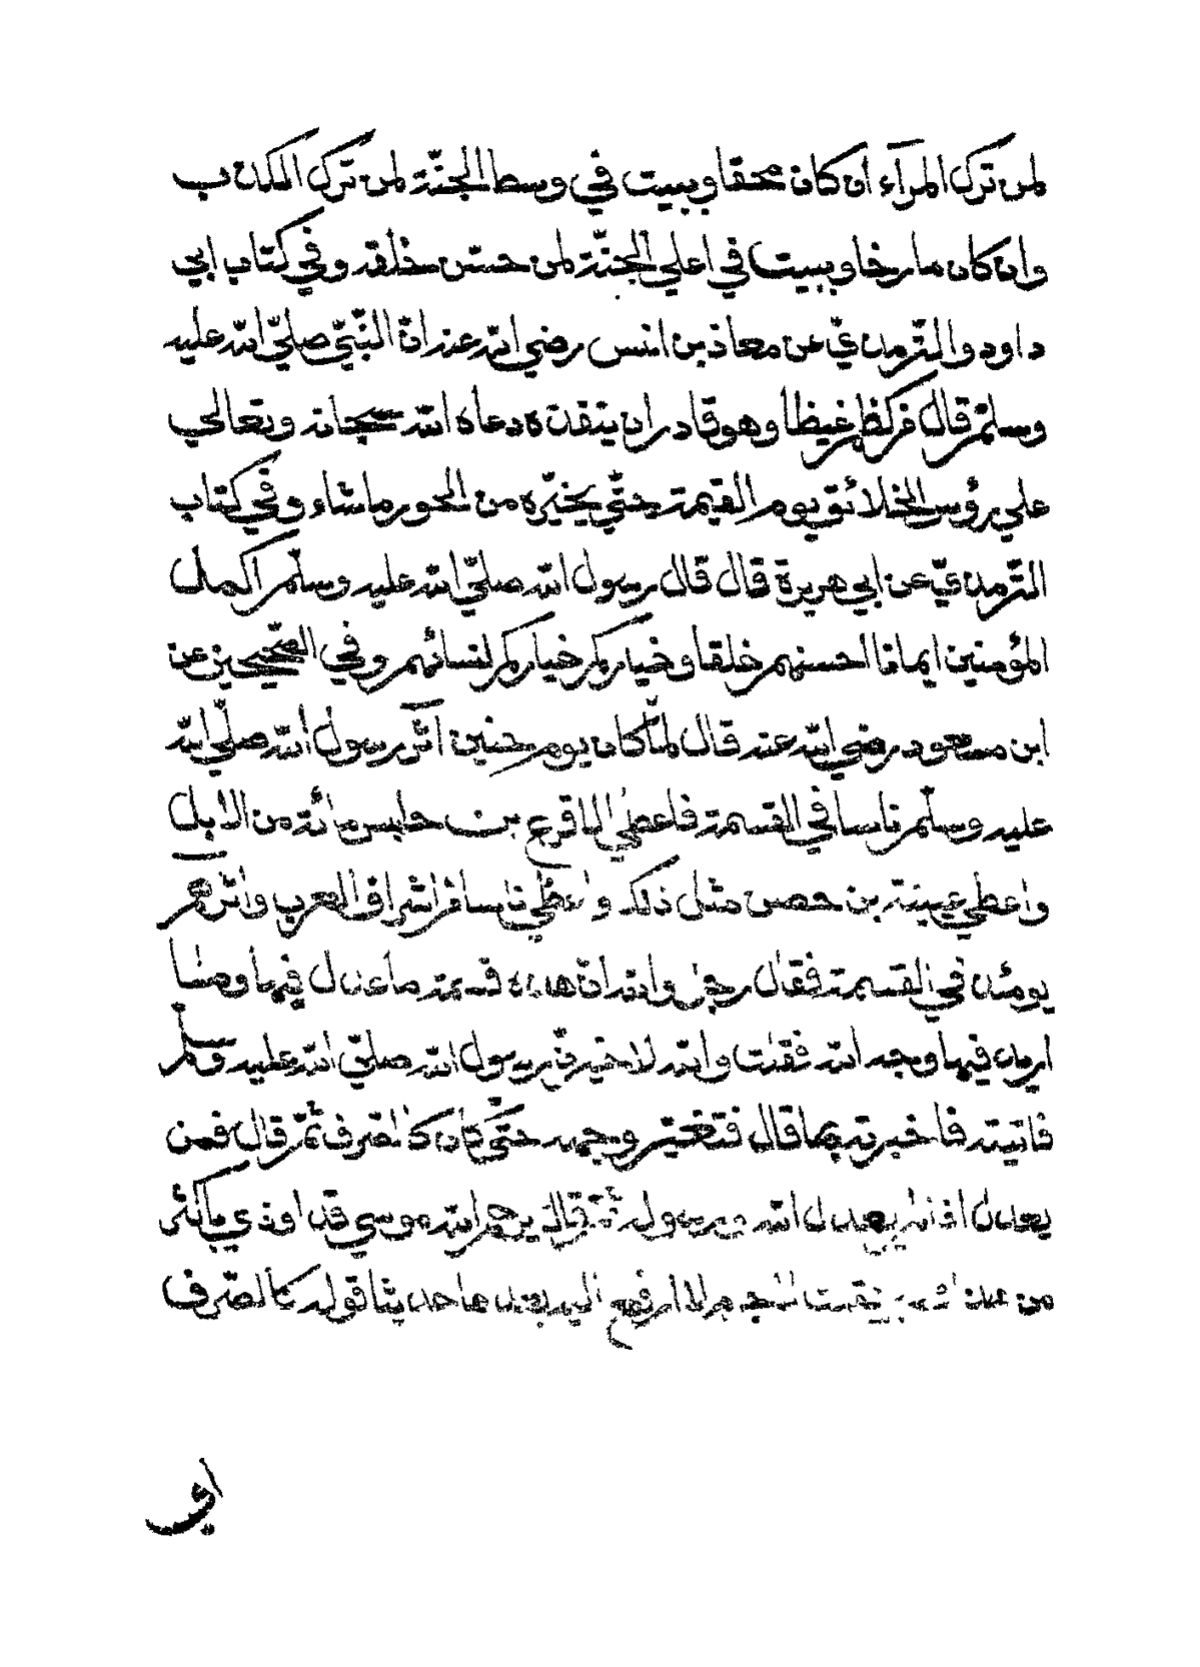 لمن ترك المرآء ان كان محقا وببيت في وسط الجنّة لمن ترك الكذب
وان كان مازحا وببيت في اعلي الجنّة لمن حسّن خلقه وفي كتاب ابي
داود والتّرمذيّ عن معاذ بن انس رضي الله عنه انّ النّبيّ صلّي الله عليه
وسلّم قال من كظم غيظا وهو قادر ان ينفذه دعاه الله سبحانه وتعالي
علي رؤس الخلائق يوم القيمة حتّي يخيّره من الحور ما شاء وفي كتاب
التّرمذيّ عن ابي هريرة قال قال رسول الله صلّي الله عليه وسلّم اكمل
المؤمنين ايمانا احسنهم خلقا وخياركم خياركم لنسائهم وفي الصّحيحين عن
ابن مسعود رضي الله عنه قال لمّا كان يوم حنين آثر رسول الله صلّي الله
عليه وسلّم ناسا في القسمة فاعطي الاقرع بن حابس مائة من الابل
واعطي عيينة بن حصن مثل ذلك واعطي ناسا من اشراف العرب واثرهم
يومئذ في القسمة فقال رجل والله انّ هذه قسمة ما عدل فيها وما
اريد فيها وجه الله فقلت والله لاخبرنّ رسول الله صلّي الله عليه وسلّم
فاتيته فاخبرته بما قال فتغيّر وجهه حتّي كان كالصّرف ثمّ قال فمن
يعدل اذا لم يعدل الله ورسوله ثمّ قال يرحم الله موسي قد اوذي باكثر
من هذا فصبر فقلت لا جرم لا ارفع اليه بعدها حديثا قوله كالصّرف